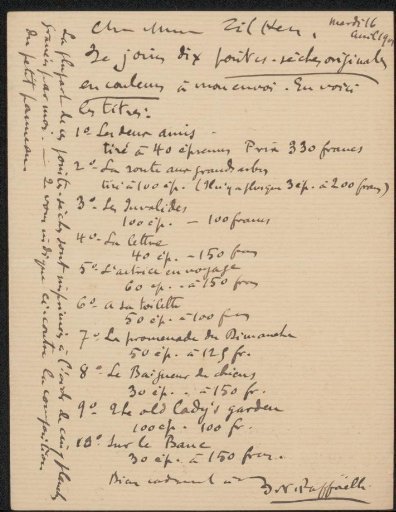 mardi 16
avril 19
Cher Monsieur Zilcken,
Je joins dix pointes-sèches originales
en couleurs à mon envoi. En voici
les titres:
1º Les deux amis -
tiré à 40 épreuves Prix 330 francs
2º La route aux grands arbres
tiré à 100 ép. (Il n'y a plus que 3 ép. à 200 francs)
3º Les Invalides
100 ép. - 100 francs
4º La lettre
40 ép. - 150 francs
5º L'actrice en voyage
60 ép. - à 150 francs
6º A sa toilette
50 ép. à 100 francs
7º La promenade du Dimanche
50 ép. à 125 fr.
8º Le Baigneur de chiens
30 ép. - à 150 fr.
9º The old lady's garden
100 ép. 100 fr.
10º Sur le Banc
30 ép. à 150 fr.
Bien cordialement à vous
J. F. Raffaëlli
La plupart de ces pointes-sèches sont imprimées à l'aide de cinq planches
gravées par moi. —
du petit panneau